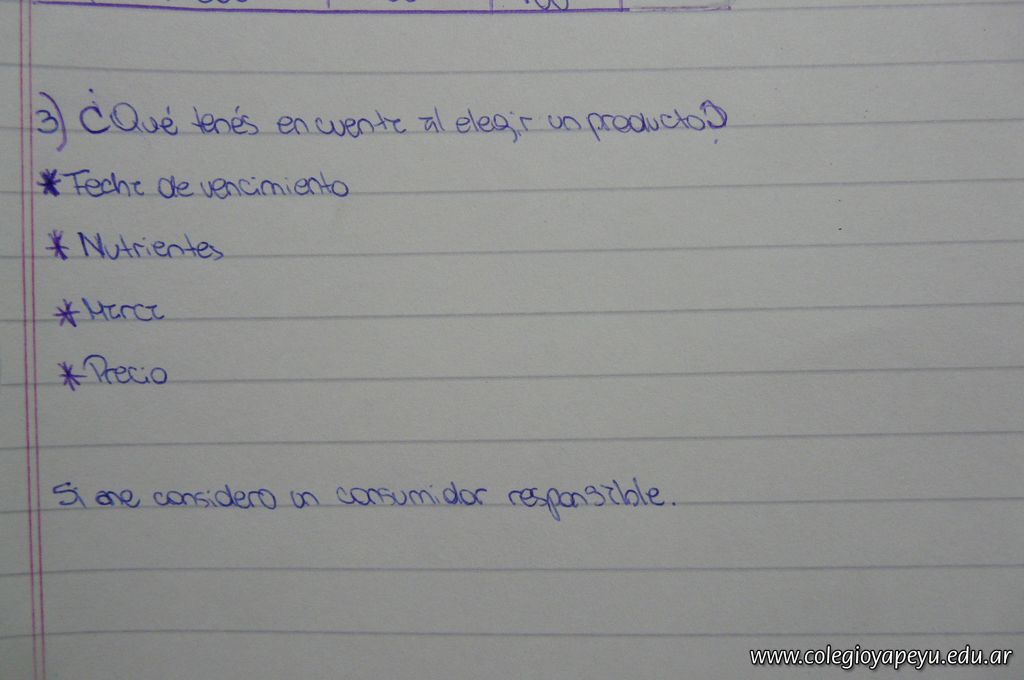 3) ¿Qué tenés en cuenta al elegir un producto?
* Fecha de vencimiento
* Nutrientes
* Marca
* Precio
Si me considero un consumidor responsable.
www.colegioyapeyu.edu.ar